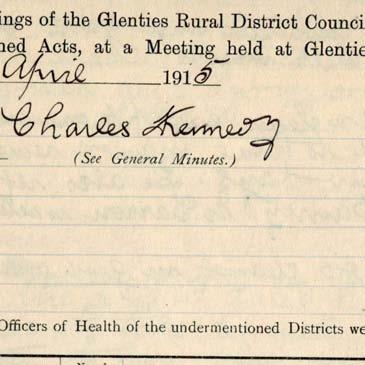 ings of the Glenties Rural District Counci
ned Acts, at a Meeting held at Glentie
April 1915
Charles Kennedy
(See General Minutes.)
Officers of Health of the undermentioned Districts we